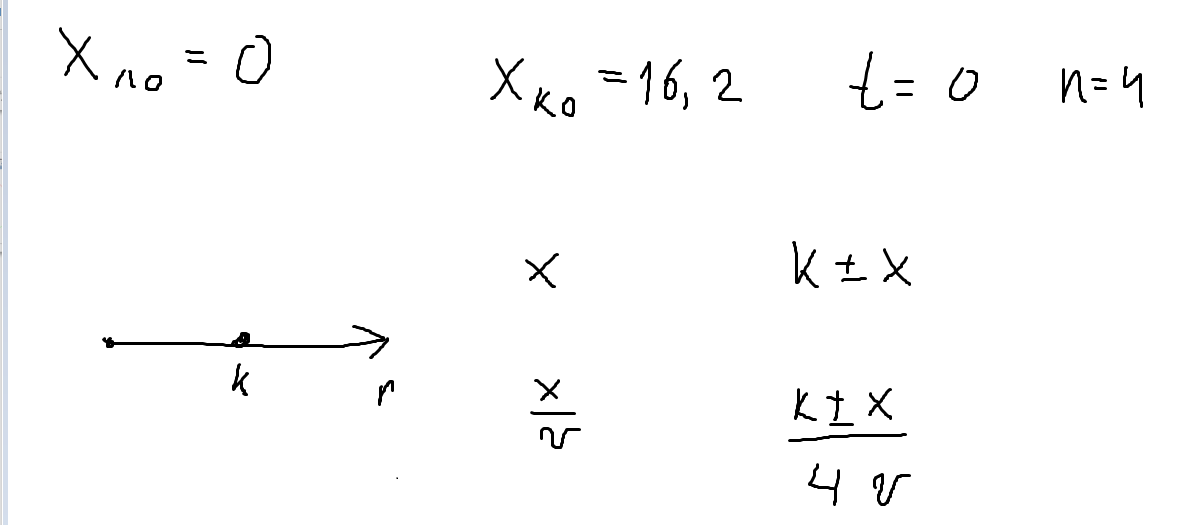 X_{ло} = 0 X_{ко} = 16,2 t = 0 n = 4
x k ± x
k r
x/v (k ± x)/(4v)